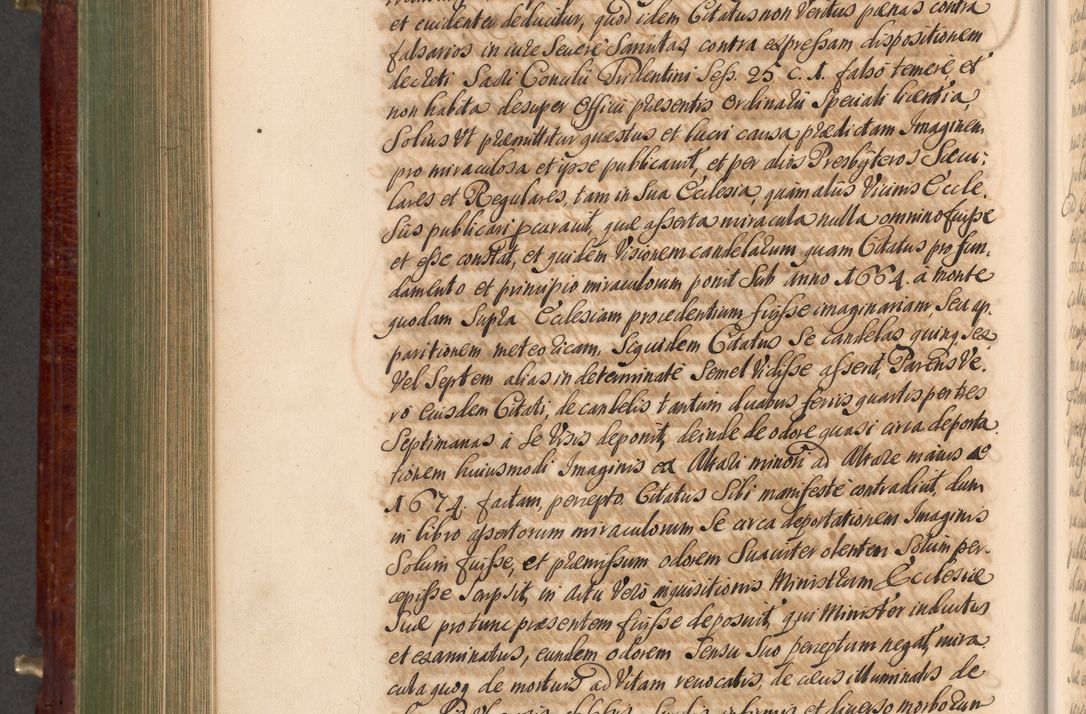 et evidenter deducitur, quod idem Citatus non veritus pænas contra
falsarios in iure Severè Sancitas, contra expressam dispositionem
decreti Sacri Concilii Tridentini Sess. 25 c. 1. falsò temerè, et
non habita desuper Officii præsentis Ordinarii Speciali licentia,
Solius ut præmittitur quæstus et lucri causa prædictam Imaginem
pro miraculosa et ipse publicavit, et per alios Presbyteros Sæcu:
lares et Regulares, tam in Sua Ecclesia, quam aliis Vicinis Eccle.
Siis publicari pcuravit, quæ asserta miracula nulla omnino fuisse
et esse constat, et quidem Visionem candelarum quam Citatus pro fun.
damento et principio miraculorum ponit Sub anno 1664. à monte
quodam Supra Ecclesiam procedentium fuisse imaginariam Seu ap.
paritionem meteoricam, Siquidem Citatus Se candelas quinq Sex
Vel Septem alias indeterminatè Semel Vidisse asserit, Parens Ve.
rò eiusdem Citati, de candelis tantum duabus feriis quartis per tres
Septimanas à Se Visis deponit, deinde de odore quasi circa deporta
tionem huiusmodi Imaginis ex Altari minori ad Altare maius Aº
1674. factam, percepto, Citatus Sibi manifestè contradicit, dum
in libro assertorum miraculorum Se circa deportationem Imaginis
Solum fuisse, et præmissum odorem Suaviter olentem Solum per.
cæpisse Scripsit, in actu Verò inquisitionis Ministrum Ecclesiæ
Suæ pro tunc præsentem fuisse deposuit, qui Minister inductus
et examinatus, eundem odorem Sensu Suo perceptum negat, mira
cula quoq de mortuis ad Vitam revocatis, de cæcis illuminatis de